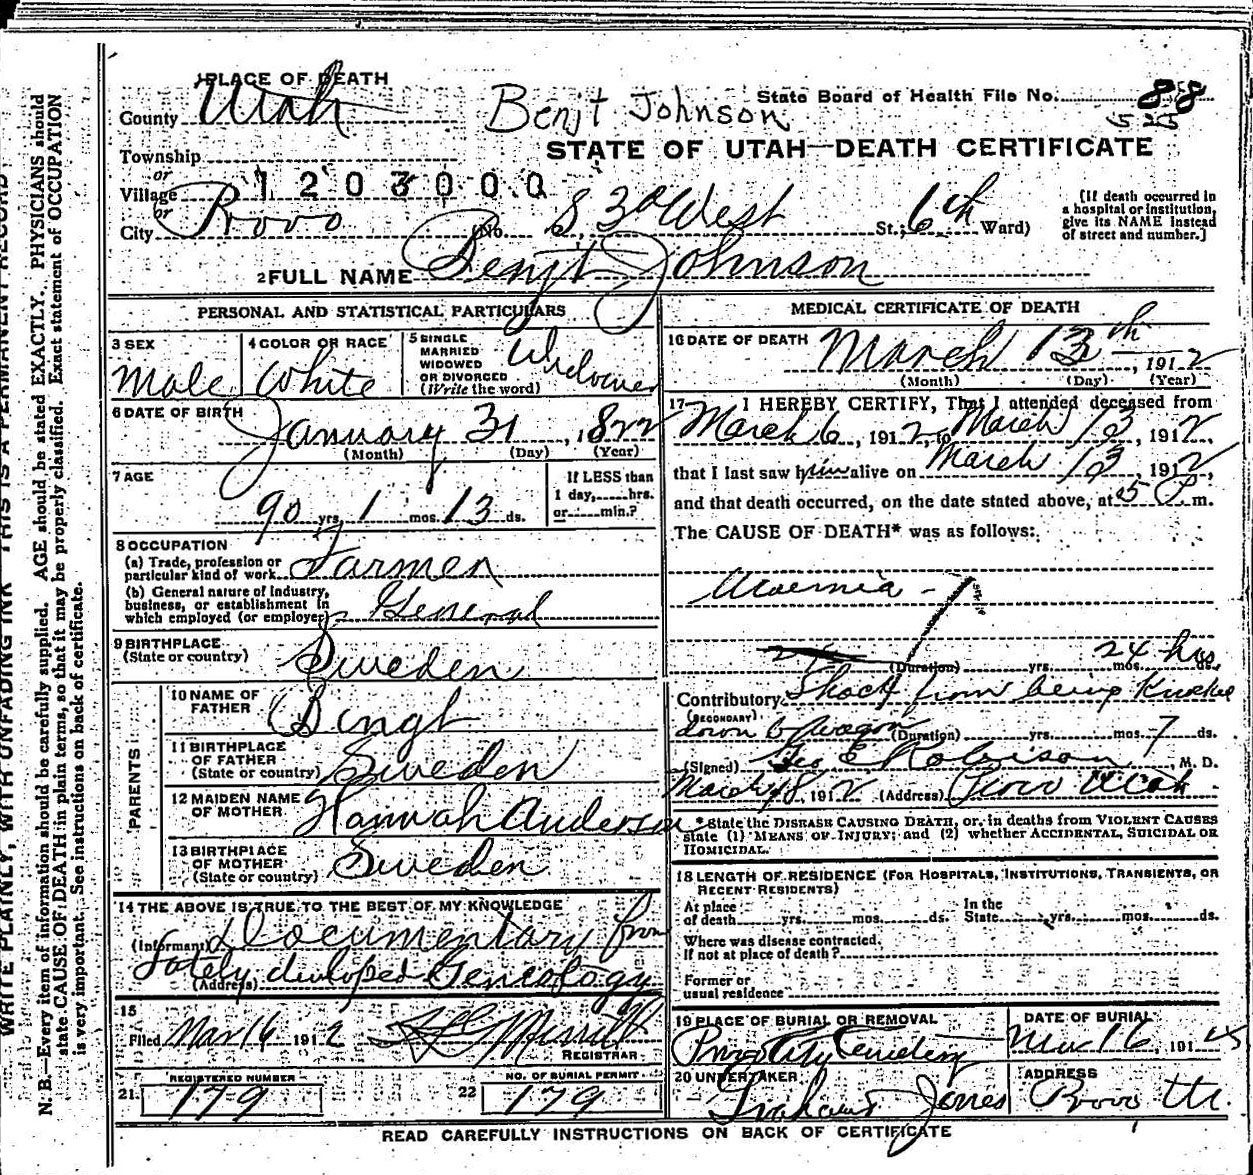 PLACE OF DEATH
County Utah
Benjt Johnson
State Board of Health File No. 88
525
STATE OF UTAH—DEATH CERTIFICATE
Township
or
Village
1203000
or
City Provo
No. S 3d West St.; 6th Ward)
[If death occurred in a hospital or institution, give its NAME instead of street and number.]
2 FULL NAME Benjt Johnson
PERSONAL AND STATISTICAL PARTICULARS
3 SEX
Male
4 COLOR OR RACE
White
5 SINGLE
MARRIED
WIDOWED
OR DIVORCED
(Write the word)
Widower
6 DATE OF BIRTH
January 31, 1822
(Month) (Day) (Year)
7 AGE
90 yrs. 1 mos. 13 ds.
If LESS than
1 day, hrs.
or min.?
8 OCCUPATION
(a) Trade, profession or
particular kind of work Farmer
(b) General nature of industry,
business, or establishment in
which employed (or employer) General
9 BIRTHPLACE
(State or country) Sweden
PARENTS
10 NAME OF
FATHER Bengt
11 BIRTHPLACE
OF FATHER
(State or country) Sweden
12 MAIDEN NAME
OF MOTHER Hannah Anderson
13 BIRTHPLACE
OF MOTHER
(State or country) Sweden
14 THE ABOVE IS TRUE TO THE BEST OF MY KNOWLEDGE
(Informant) Documentary from
(Address) Lately developed Geneology
15
Filed Mar 16 1912 Merrill
REGISTRAR
REGISTERED NUMBER
21. 179
NO. OF BURIAL PERMIT
22 179
MEDICAL CERTIFICATE OF DEATH
16 DATE OF DEATH
March 13th, 1912
(Month) (Day) (Year)
17 I HEREBY CERTIFY, That I attended deceased from
March 6, 1912, to March 13, 1912,
that I last saw him alive on March 13, 1912,
and that death occurred, on the date stated above, at 5 P. m.
The CAUSE OF DEATH* was as follows:
Uraemia
(Duration) yrs. mos. ds.
24 hrs
Contributory Shock from being Knocked
(SECONDARY)
down by wagon (Duration) yrs. mos. 7 ds.
(Signed) Geo E Robison, M. D.
March 1912 (Address) Provo Utah
*State the DISEASE CAUSING DEATH, or, in deaths from VIOLENT CAUSES
state (1) MEANS OF INJURY; and (2) whether ACCIDENTAL, SUICIDAL OR
HOMICIDAL.
18 LENGTH OF RESIDENCE (FOR HOSPITALS, INSTITUTIONS, TRANSIENTS, OR
RECENT RESIDENTS)
At place
of death yrs. mos. ds.
In the
State yrs. mos. ds.
Where was disease contracted.
If not at place of death?
Former or
usual residence
19 PLACE OF BURIAL OR REMOVAL
Provo City Cemetery
DATE OF BURIAL
Mar 16, 191
20 UNDERTAKER
Graham Jones
ADDRESS
Provo Ut.
READ CAREFULLY INSTRUCTIONS ON BACK OF CERTIFICATE
WRITE PLAINLY, WITH UNFADING INK—THIS IS A PERMANENT RECORD
N. B.—Every item of information should be carefully supplied. AGE should be stated EXACTLY. PHYSICIANS should
state CAUSE OF DEATH in plain terms, so that it may be properly classified. Exact statement of OCCUPATION
is very important. See instructions on back of certificate.